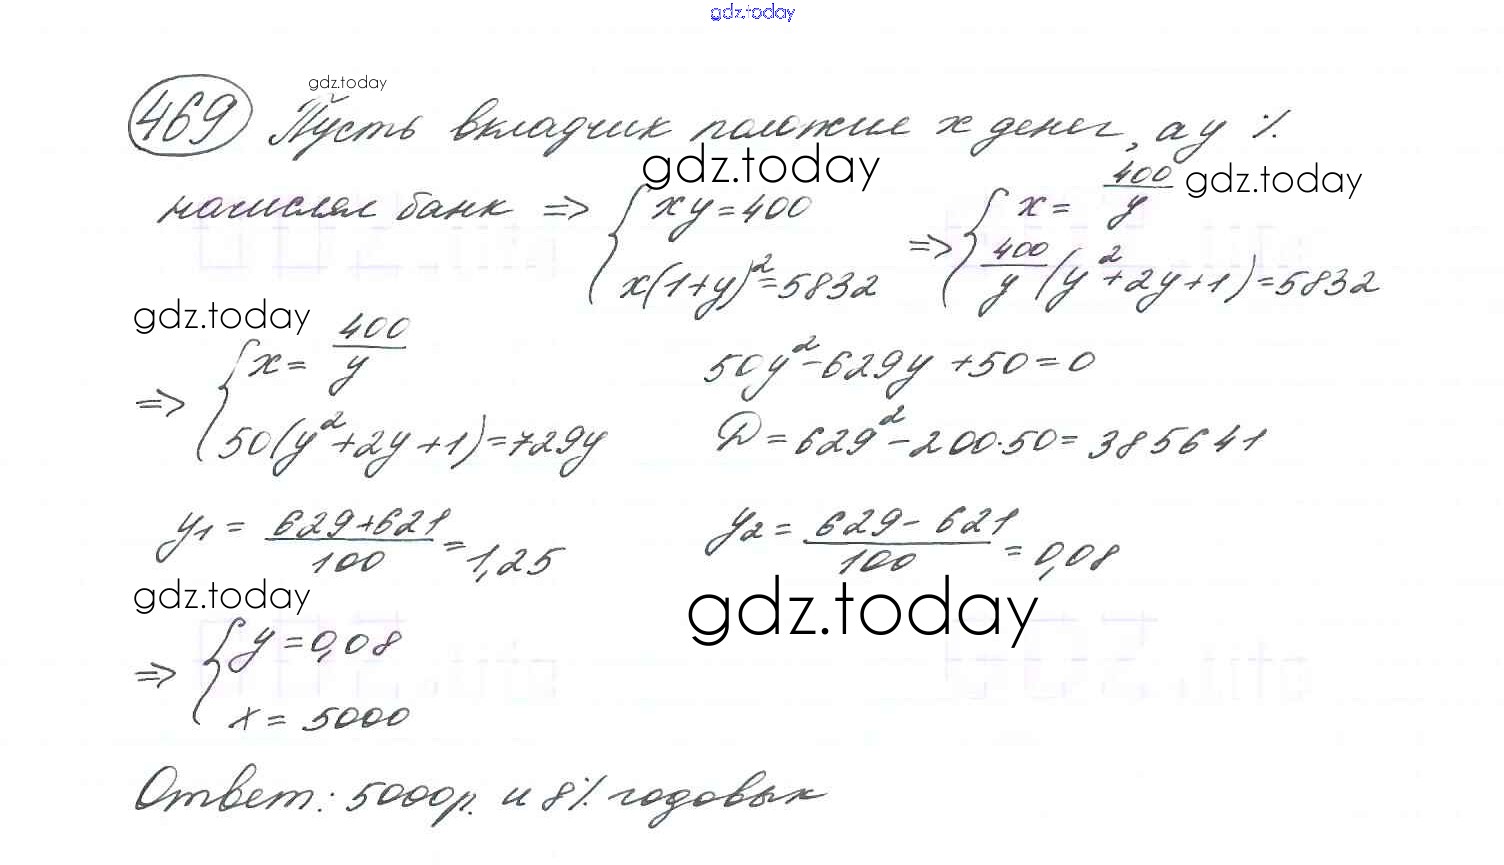 gdz.today
gdz.today
469 Пусть вкладчик положил x денег, а y %
gdz.today
начислял банк ⇒ { xy = 400 ⇒ { x = 400/y gdz.today
x(1+y)² = 5832 400/y (y²+2y+1) = 5832
gdz.today
⇒ { x = 400/y 50y² - 629y + 50 = 0
50(y²+2y+1) = 729y D = 629² - 200·50 = 385641
y₁ = (629+621)/100 = 1,25 y₂ = (629-621)/100 = 0,08
gdz.today gdz.today
⇒ { y = 0,08
x = 5000
Ответ: 5000р. и 8% годовых